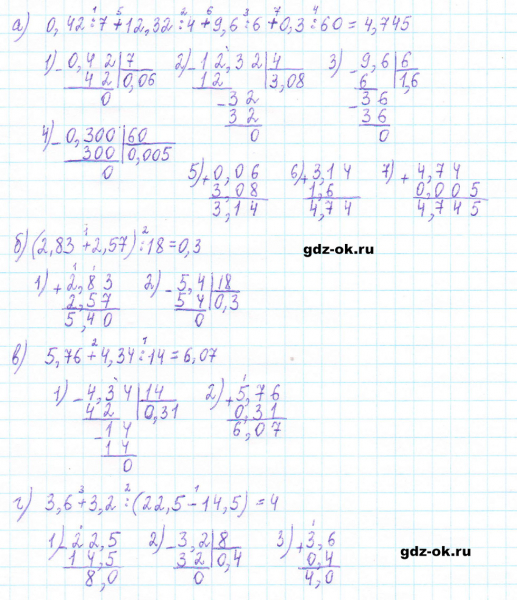 а) 0,42:7+12,32:4+9,6:6+0,3:60=4,745
1) -0,42|7 2) -12,32|4 3) -9,6|6
42 |0,06 12 |3,08 6 |1,6
0 -32 -36
32 36
0 0
4) -0,300|60
300|0,005
0
5) +0,06 6) +3,14 7) +4,74
3,08 1,6 0,005
3,14 4,74 4,745
б) (2,83+2,57):18=0,3
gdz-ok.ru
1) +2,83 2) -5,4|18
2,57 54|0,3
5,40 0
в) 5,76+4,34:14=6,07
1) -4,34|14 2) +5,76
42 |0,31 0,31
-14 6,07
14
0
г) 3,6+3,2:(22,5-14,5)=4
1) -22,5 2) -3,2|8 3) +3,6
14,5 32|0,4 0,4
8,0 0 4,0
gdz-ok.ru